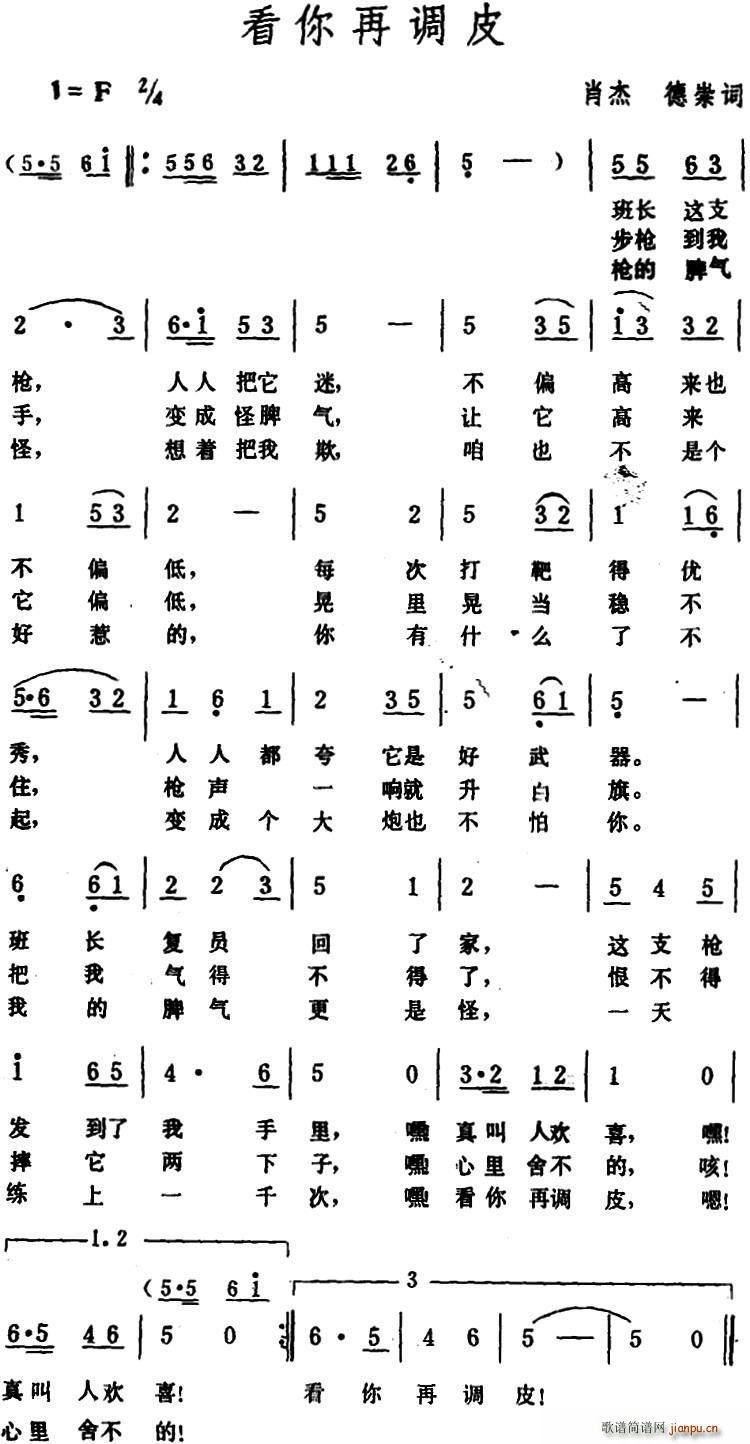 看你再调皮
1=F 2/4 肖杰 德崇词
(5·5 6i ‖: 556 32 | 111 26 | 5 — ) | 55 63 |
班长 这支
步枪 到我
枪的 脾气
2 · 3 | 6·i 53 | 5 — | 5 35 | i3 32 |
枪, 人人 把它 迷, 不 偏 高 来也
手, 变成 怪脾 气, 让 它 高 来
怪, 想着 把我 欺, 咱 也 不 是个
1 53 | 2 — | 5 2 | 5 32 | 1 16 |
不 偏 低, 每 次 打 靶 得 优
它 偏 低, 晃 里 晃 当 稳 不
好 惹 的, 你 有 什 么 了 不
5·6 32 | 1 6 1 | 2 35 | 5 61 | 5 — |
秀, 人 人 都 夸 它是 好 武 器。
住, 枪 声 一 响就 升 白 旗。
起, 变 成 个 大 炮也 不 怕 你。
6 61 | 2 2 3 | 5 1 | 2 — | 5 4 5 |
班 长 复 员 回 了 家, 这 支 枪
把 我 气 得 不 得 了, 恨 不 得
我 的 脾 气 更 是 怪, 一 天
i 65 | 4 · 6 | 5 0 | 3·2 12 | 1 0 |
发 到了 我 手 里, 嘿! 真叫 人欢 喜, 嘿!
摔 它 两 下 子, 嘿! 心里 舍不 的, 咳!
练 上 一 千 次, 嘿! 看你 再调 皮, 嗯!
1.2
(5·5 6i 3
6·5 46 | 5 0 :‖ 6 · 5 | 4 6 | 5 — | 5 0 ‖
真叫 人欢 喜! 看 你 再 调 皮!
心里 舍不 的!
歌谱简谱网 jianpu.cn